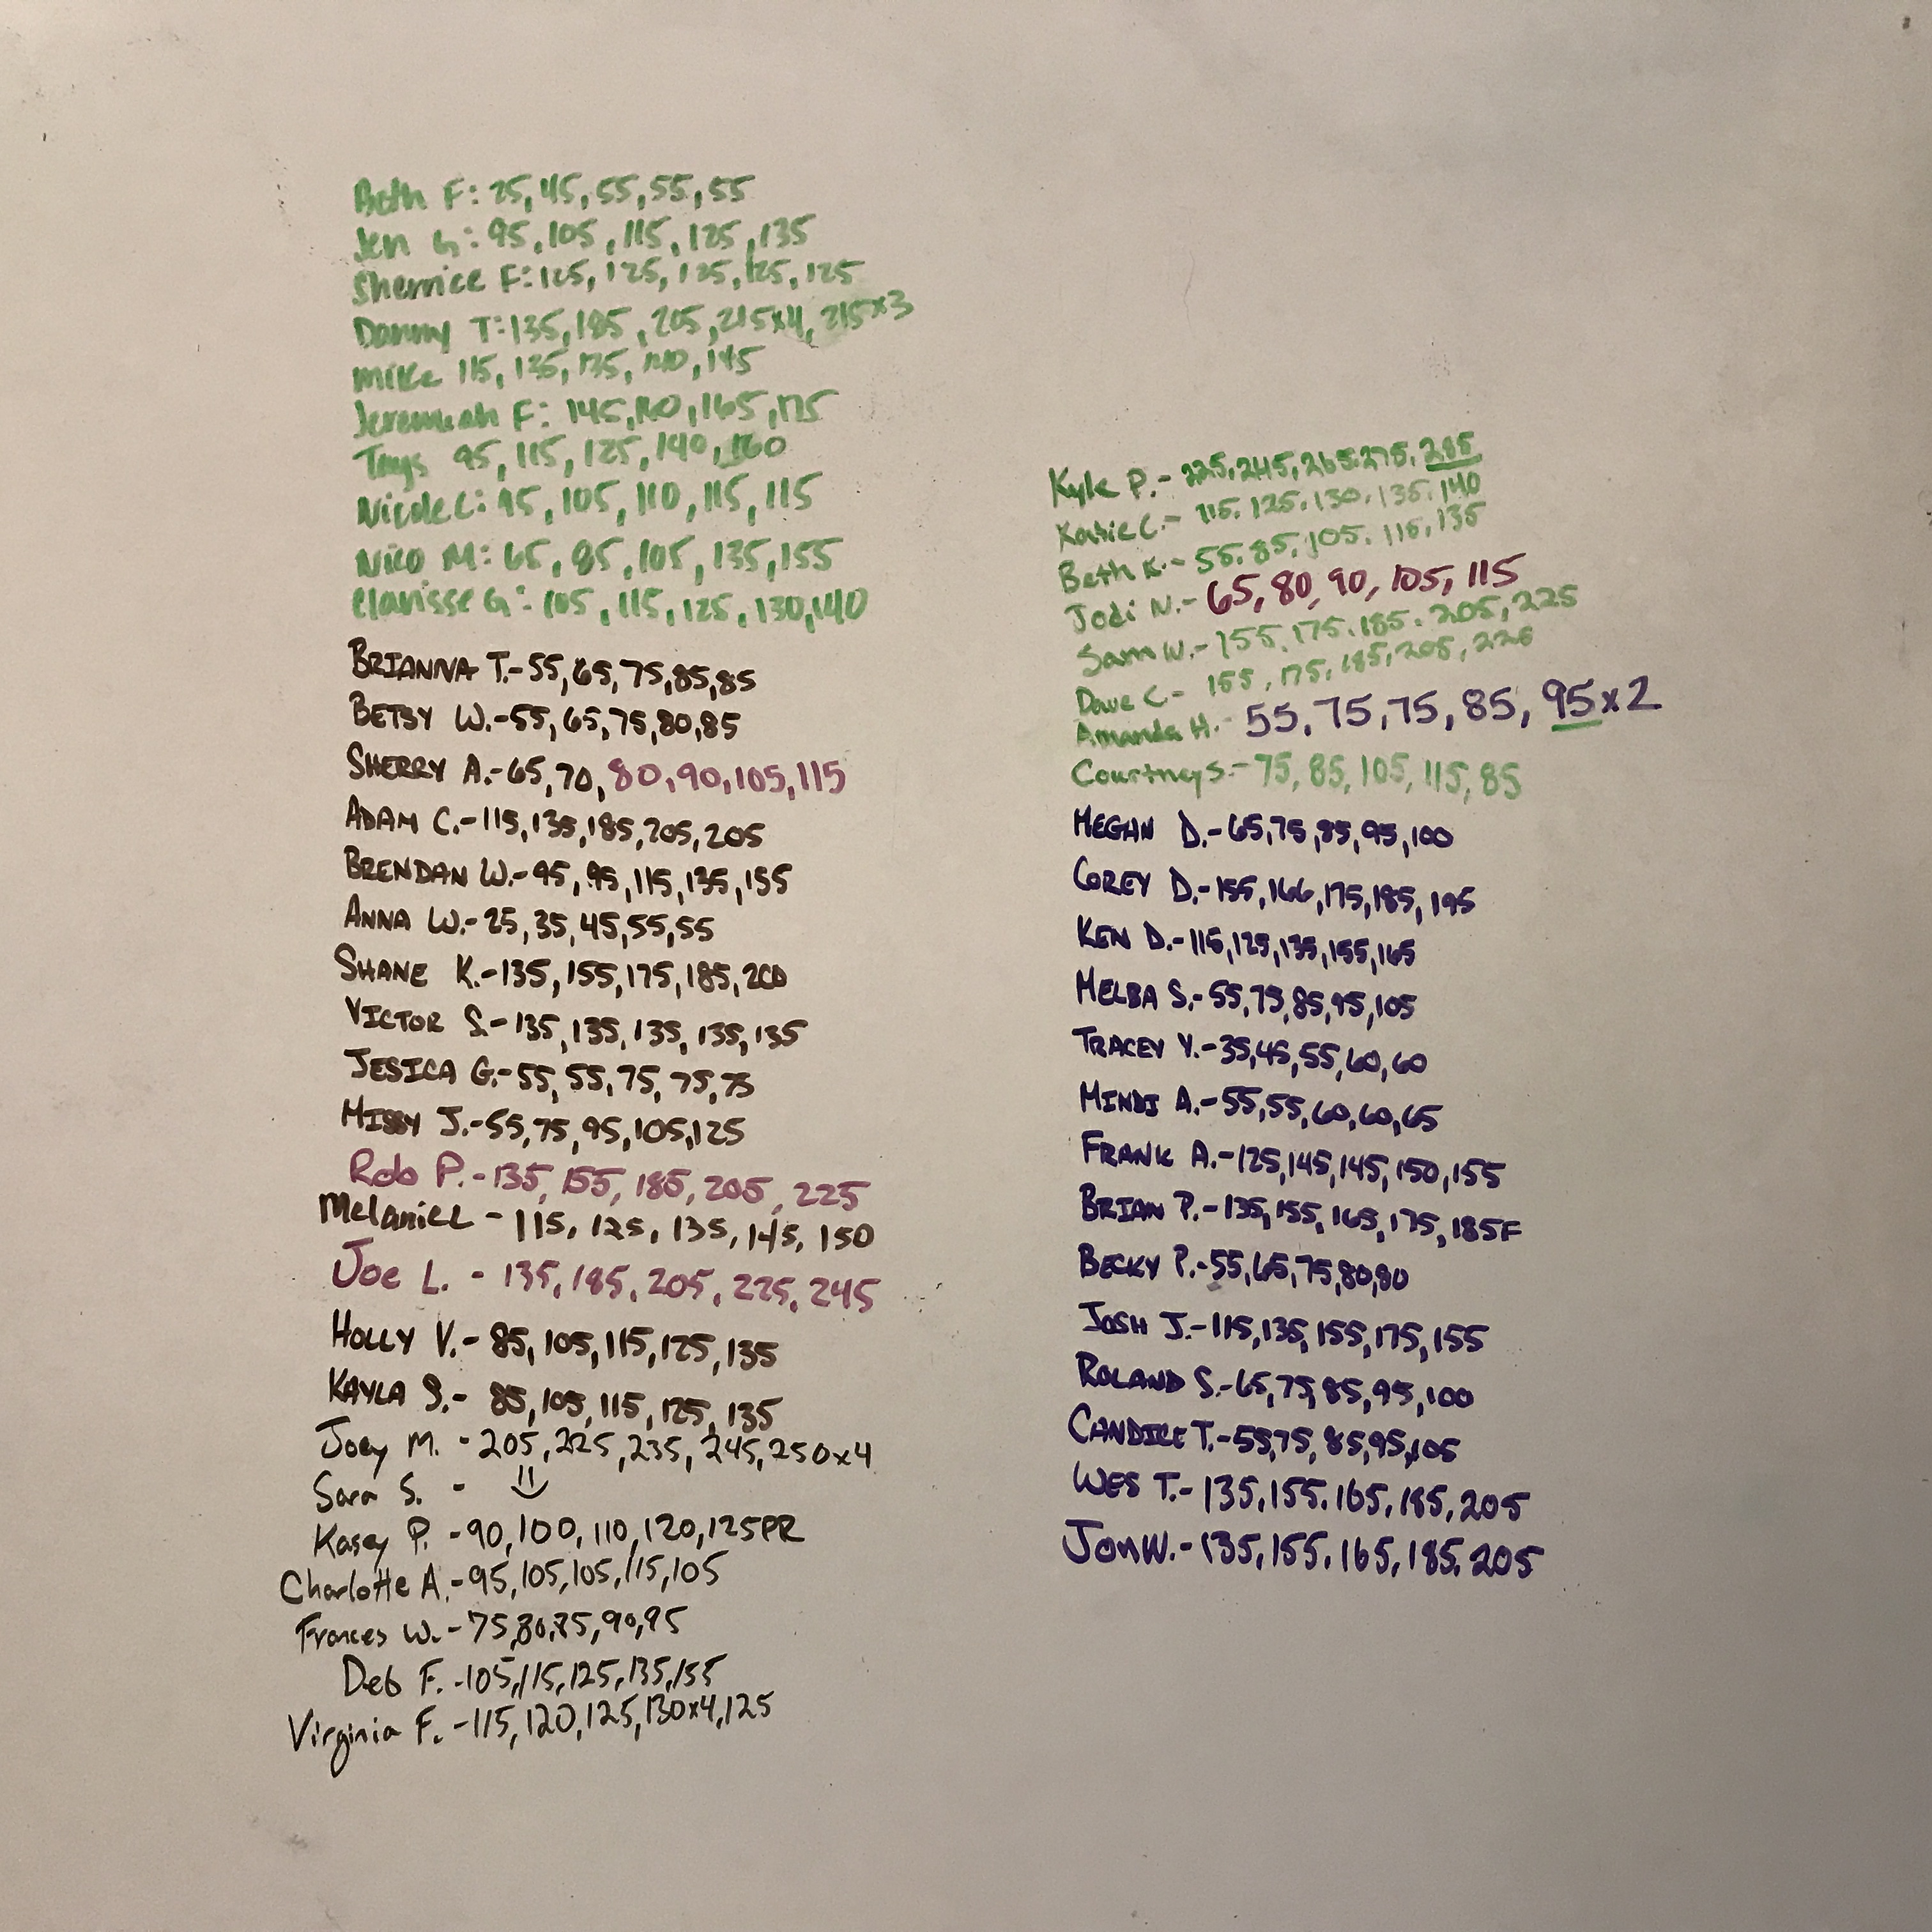 Beth F: 25, 45, 55, 55, 55
Jen G: 95, 105, 115, 125, 135
Sherrice F: 125, 125, 125, 125
Danny T: 135, 185, 205, 215x4, 215x3
Mike 115, 135, 145
Jeremiah F: 145, 160, 165, 175
95, 115, 125, 140, 160
Nicole C: 95, 105, 110, 115, 115
Nico M: 65, 85, 105, 135, 155
Clarisse G: 105, 115, 125, 130, 140
BRIANNA T.- 55, 65, 75, 85, 85
BETSY W.- 55, 65, 75, 80, 85
SHERRY A.- 65, 70, 80, 90, 105, 115
ADAM C.- 115, 135, 185, 205, 205
BRENDAN W.- 95, 95, 115, 135, 155
ANNA W.- 25, 35, 45, 55, 55
SHANE K.- 135, 155, 175, 185, 200
VICTOR S.- 135, 135, 135, 135, 135
JESICA G.- 55, 55, 75, 75, 75
MISSY J.- 55, 75, 95, 105, 125
Rob P.- 135, 155, 185, 205, 225
Melanie L - 115, 125, 135, 145, 150
Joe L. - 135, 185, 205, 225, 245
HOLLY V.- 85, 105, 115, 125, 135
KAYLA S.- 85, 105, 115, 125, 135
Joey M. - 205, 225, 235, 245, 250x4
Sara S. -
Kasey P. - 90, 100, 110, 120, 125PR
Charlotte A.- 95, 105, 105, 115, 105
Frances W. - 75, 80, 85, 90, 95
Deb F. - 105, 115, 125, 135, 155
Virginia F. - 115, 120, 125, 130x4, 125
Kyle P.- 225, 245, 265, 275, 285
Katie C.- 115, 125, 130, 135, 140
Beth K.- 55, 85, 105, 115, 135
Jodi N.- 65, 80, 90, 105, 115
Sam W.- 155, 175, 185, 205, 225
Dave C- 155, 175, 185, 205, 225
Amanda H.- 55, 75, 75, 85, 95x2
Courtney S.- 75, 85, 105, 115, 85
MEGHN D.- 65, 75, 85, 95, 100
COREY D.- 155, 166, 175, 185, 195
KEN D.- 115, 125, 135, 155, 165
MELBA S.- 55, 75, 85, 95, 105
TRACEY Y.- 35, 45, 55, 60, 60
MINDI A.- 55, 55, 60, 60, 65
FRANK A.- 125, 145, 145, 150, 155
BRIAN P.- 135, 155, 165, 175, 185F
BECKY P.- 55, 65, 75, 80, 80
JOSH J.- 115, 135, 155, 175, 155
ROLAND S.- 65, 75, 85, 95, 100
CANDICE T.- 55, 75, 85, 95, 105
WES T.- 135, 155, 165, 185, 205
Jon W.- 135, 155, 165, 185, 205